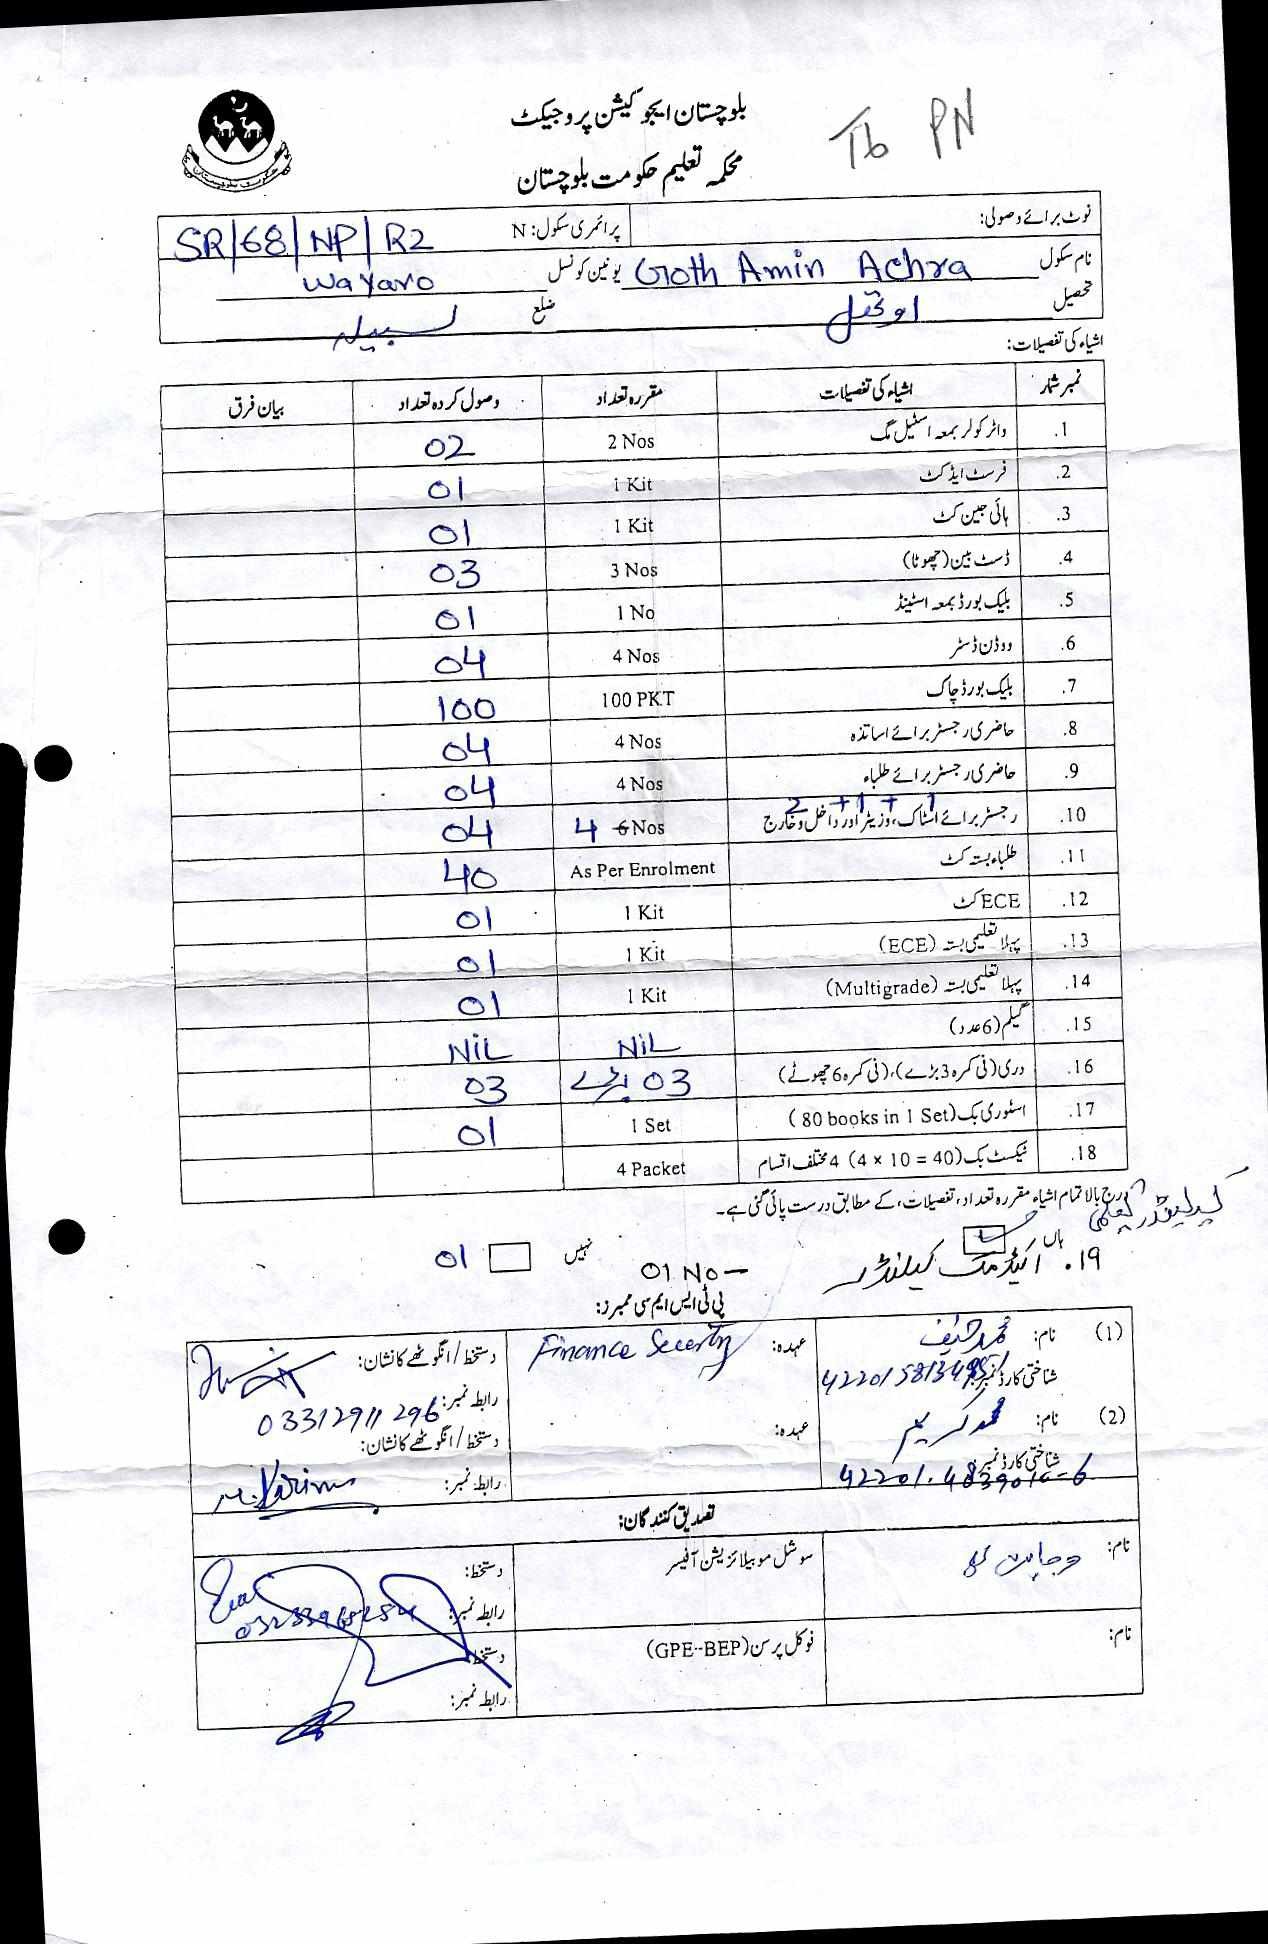 بلوچستان ایجوکیشن پروجیکٹ
Tb PN
محکمہ تعلیم حکومت بلوچستان
نوٹ برائے وصولی:
پرائمری سکول: N SR/68/NP/R2
نام سکول Goth Amin Achra یونین کونسل Wayaro
تحصیل اوتھل ضلع لسبیلہ
اشیاء کی تفصیلات:
نمبر شمار اشیاء کی تفصیلات مقررہ تعداد وصول کردہ تعداد بیان فرق
1. واٹر کولر بمعہ اسٹیل مگ 2 Nos 02
2. فرسٹ ایڈ کٹ 1 Kit 01
3. ہائی جین کٹ 1 Kit 01
4. ڈسٹ بین (چھوٹا) 3 Nos 03
5. بلیک بورڈ بمعہ اسٹینڈ 1 No 01
6. ووڈن ڈسٹر 4 Nos 04
7. بلیک بورڈ چاک 100 PKT 100
8. حاضری رجسٹر برائے اساتذہ 4 Nos 04
9. حاضری رجسٹر برائے طلباء 4 Nos 04
2 + 1 + 1
10. رجسٹر برائے اسٹاک، وزیٹر اور داخل و خارج 4 6 Nos 04
11. طلباء بستہ کٹ As Per Enrolment 40
12. ECE کٹ 1 Kit 01
13. پہلا تعلیمی بستہ (ECE) 1 Kit 01
14. پہلا تعلیمی بستہ (Multigrade) 1 Kit 01
15. گیلم (6 عدد) NiL NiL
16. دری (فی کمرہ 3 بڑے)، (فی کمرہ 6 چھوٹے) 03 بڑے 03
17. اسٹوری بک (80 books in 1 Set) 1 Set 01
18. ٹیکسٹ بک (4 × 10 = 40) 4 مختلف اقسام 4 Packet
درج بالا تمام اشیاء مقررہ تعداد، تفصیلات، کے مطابق درست پائی گئی ہے۔
ہاں نہیں
19. اکیڈمک کیلنڈر 01 No - 01
پی ٹی ایس ایم سی ممبرز:
(1) نام: محمد حنیف عہدہ: Finance Secertry دستخط / انگوٹھے کا نشان:
شناختی کارڈ نمبر: رابطہ نمبر: 03312911296
(2) نام: محمد کریم عہدہ: دستخط / انگوٹھے کا نشان:
شناختی کارڈ نمبر: رابطہ نمبر: M. Karim
تصدیق کنندگان:
نام: سوشل موبیلائزیشن آفیسر دستخط:
رابطہ نمبر:
نام: فوکل پرسن (GPE-BEP) دستخط:
رابطہ نمبر: